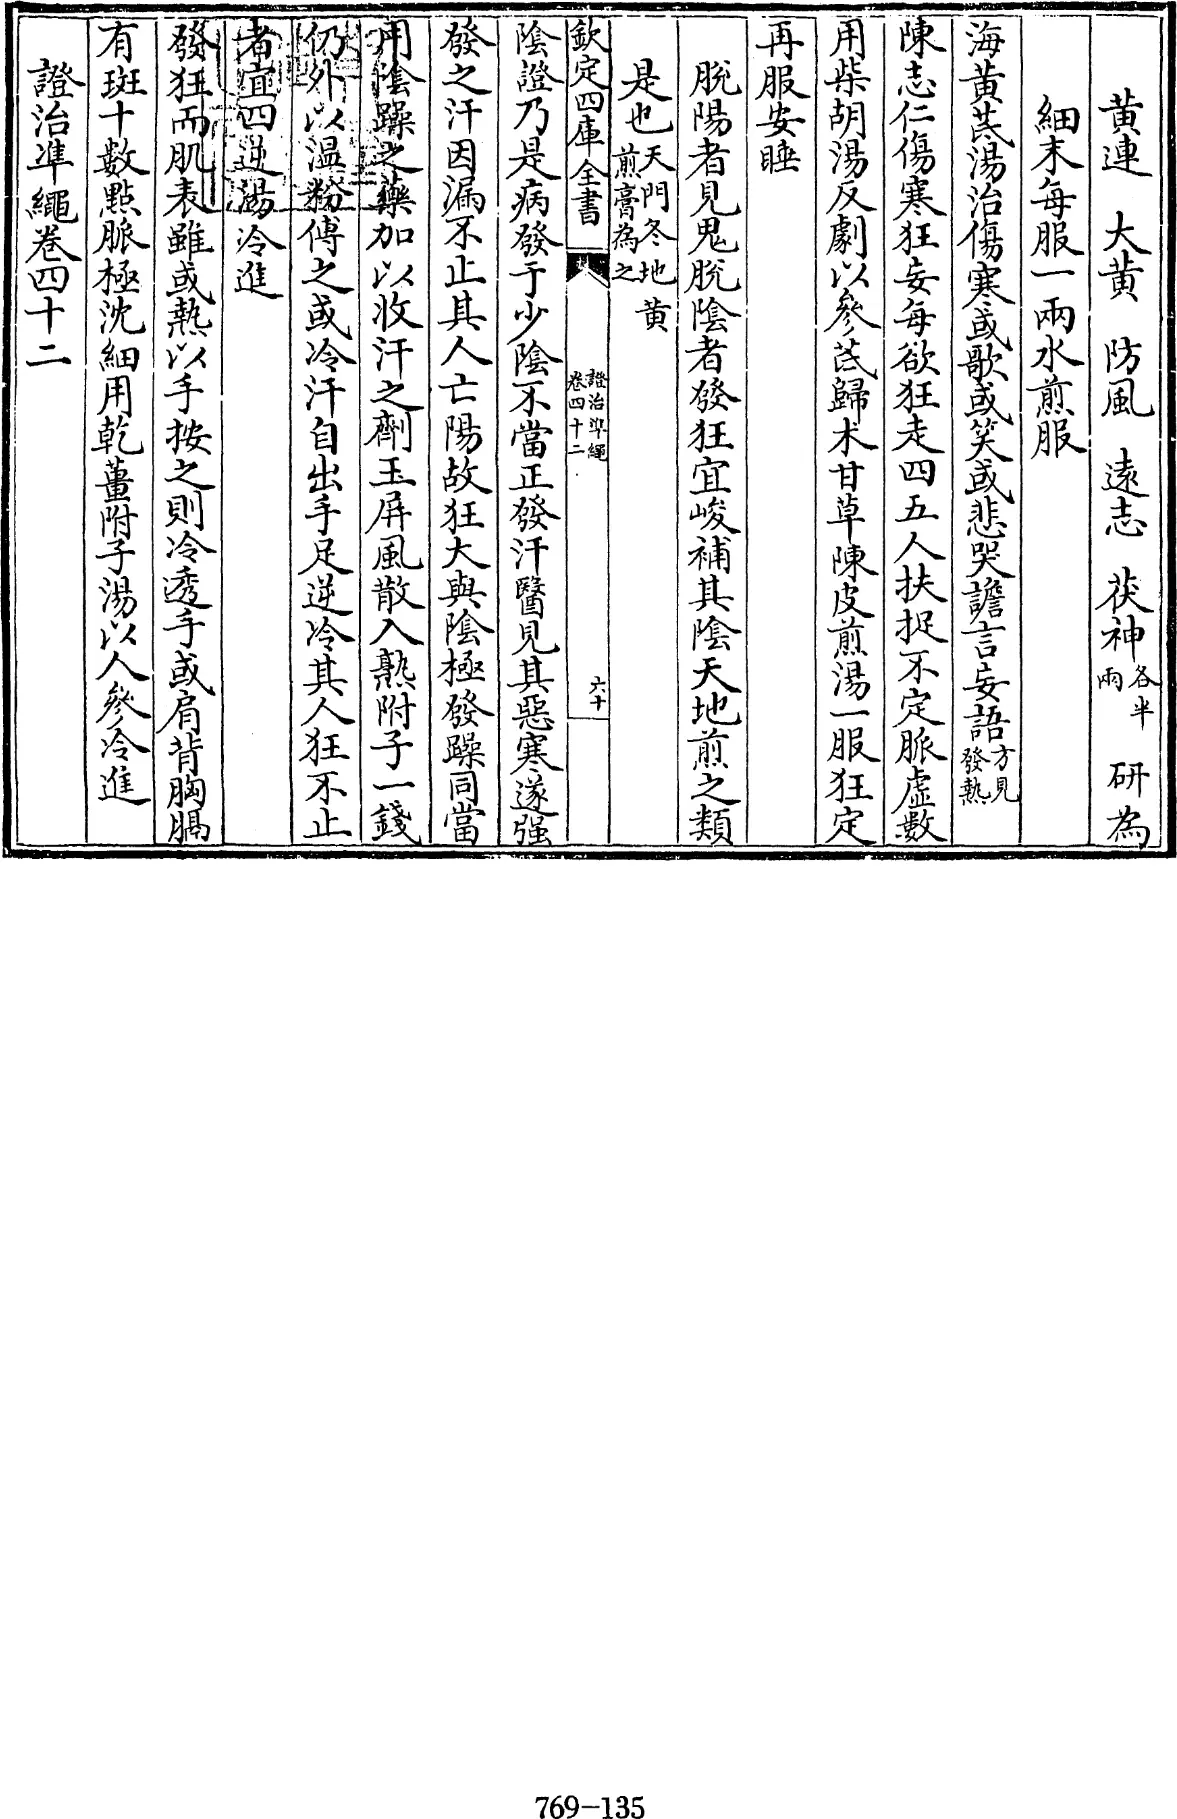 黄連　大黄　防風　遠志　茯神各半兩　研為
細末每服一兩水煎服
海黄芪湯治傷寒或歌或笑或悲哭譫言妄語方見發熱
陳志仁傷寒狂妄每欲狂走四五人扶捉不定脈虛數
用柴胡湯反劇以參芪歸朮甘草陳皮煎湯一服狂定
再服安睡
脫陽者見鬼脫陰者發狂宜峻補其陰天地煎之類
是也天門冬地黄煎膏為之
欽定四庫全書
證治準繩
卷四十二
六十
陰證乃是病發于少陰不當正發汗醫見其惡寒遂强
發之汗因漏不止其人亡陽故狂大與陰極發躁同當
用陰躁之藥加以收汗之劑玉屏風散入熟附子一錢
仍外以温粉傅之或冷汗自出手足逆冷其人狂不止
者宜四逆湯冷進
發狂而肌表雖或熱以手按之則冷透手或肩背胸膈
有斑十數㸃脈極沈細用乾薑附子湯以人參冷進
證治準繩卷四十二
769-135